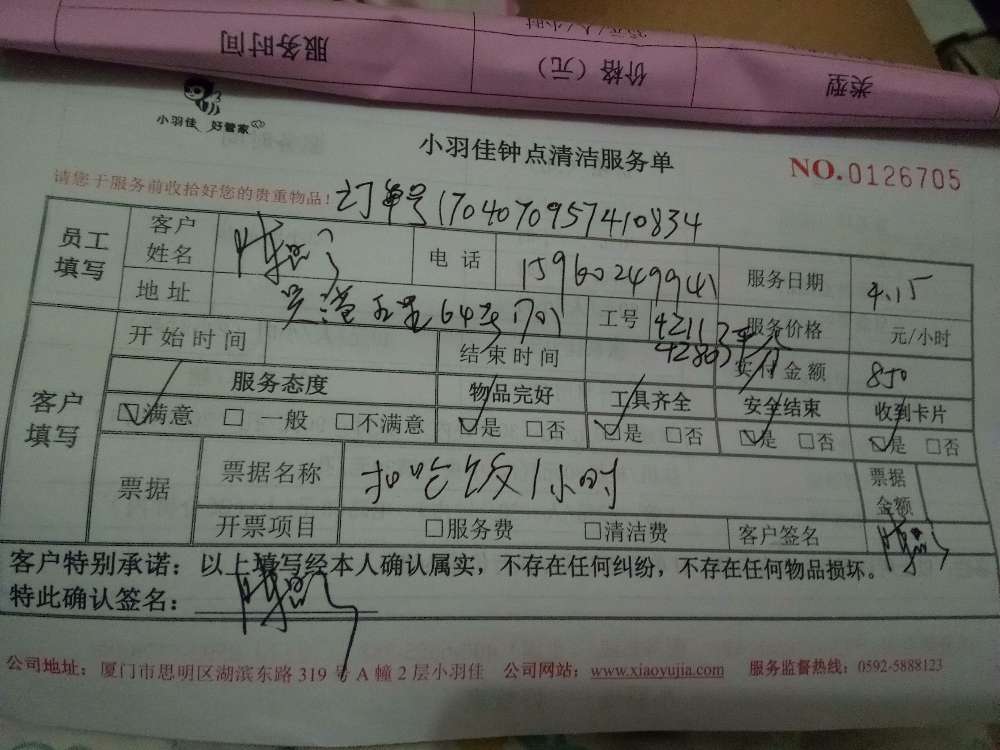 服务时间
价格（元）
类型
小羽佳 好管家
小羽佳钟点清洁服务单
NO.0126705
请您于服务前收拾好您的贵重物品！
订单号1704070957410834
员工填写
客户姓名
电话
15960249941
服务日期
4.15
地址
64号1701
工号
42117
42803
服务价格
元/小时
客户填写
开始时间
结束时间
实付金额
850
服务态度
物品完好
工具齐全
安全结束
收到卡片
☑满意 □一般 □不满意
☑是 □否
☑是 □否
☑是 □否
☑是 □否
票据
票据名称
扣吃饭1小时
票据金额
开票项目
□服务费
□清洁费
客户签名
客户特别承诺：以上填写经本人确认属实，不存在任何纠纷，不存在任何物品损坏。
特此确认签名：
公司地址：厦门市思明区湖滨东路 319 号 A 幢 2 层小羽佳 公司网站：www.xiaoyujia.com 服务监督热线：0592-5888123